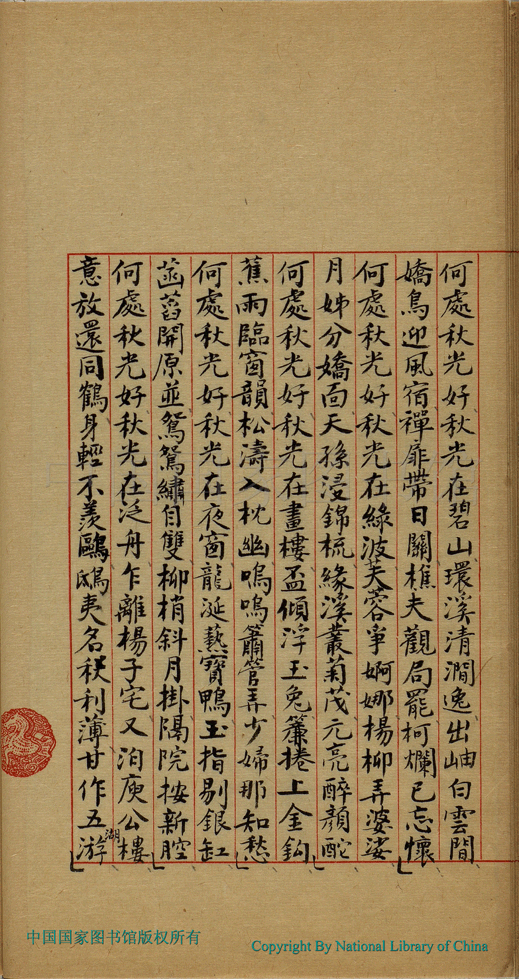 何處秋光好秋光在碧山環溪清澗逸出岫白雲間
嬌鳥迎風宿禪扉帶日關樵夫觀局罷柯爛已忘懷
何處秋光好秋光在綠波芙蓉爭婀娜楊柳弄婆娑
月姊分嬌面天孫浸錦梳緣溪叢菊茂元亮醉顏酡
何處秋光好秋光在畫樓盃傾浮玉兔簾捲上金鈎
蕉雨臨窗韻松濤入枕幽嗚嗚簫管弄少婦那知愁
何處秋光好秋光在夜窗龍涎爇寶鴨玉指剔銀缸
菡萏開原並鴛鴦繡自雙柳梢斜月掛隔院按新腔
何處秋光好秋光在泛舟乍離楊子宅又泊庾公樓
意放還同鶴身輕不羨鷗鴟夷名秩利薄甘作五湖游
中国国家图书馆版权所有
Copyright By National Library of China